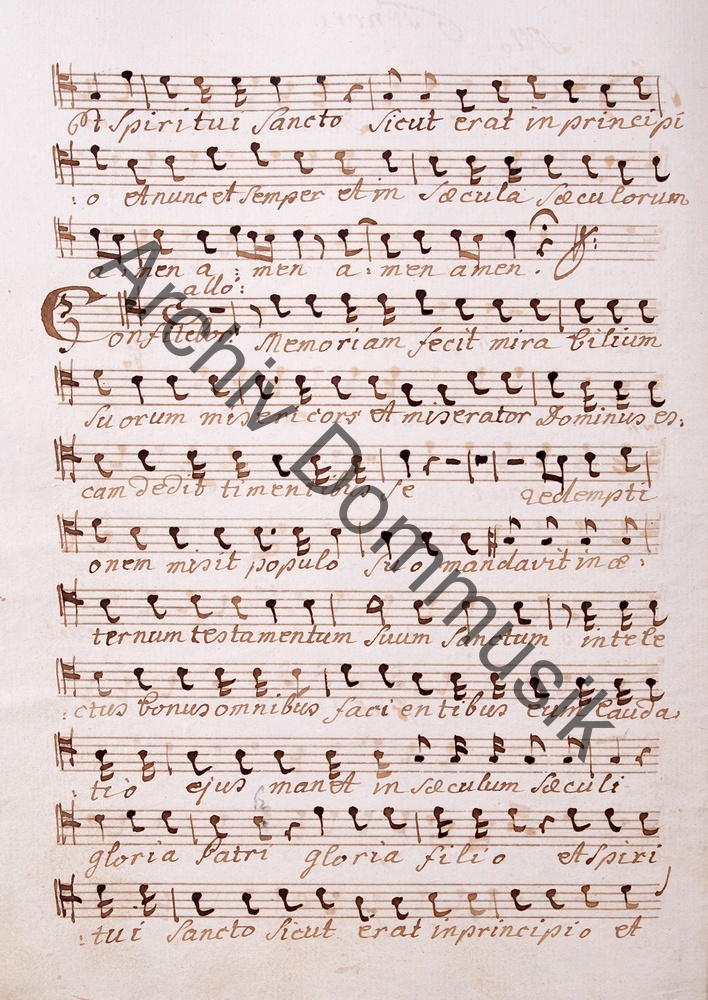 Et Spiritui Sancto Sicut erat in principi
: o et nunc et Semper et in Sæcula Sæculorum
a : men a : men a : men amen .
allo:
Confitebor: Memoriam fecit mira bilium
Su orum misericors et miserator Dominus es:
cam dedit timentibus se redempti
onem misit populo suo mandavit in æ:
ternum testamentum Suum Sanctum intele
:ctus bonus omnibus faci entibus eum Lauda
:tio ejus manet in Sæculum Sæculi
gloria Patri gloria filio et Spiri
:tui Sancto Sicut erat in principio et
Archiv Dommusik